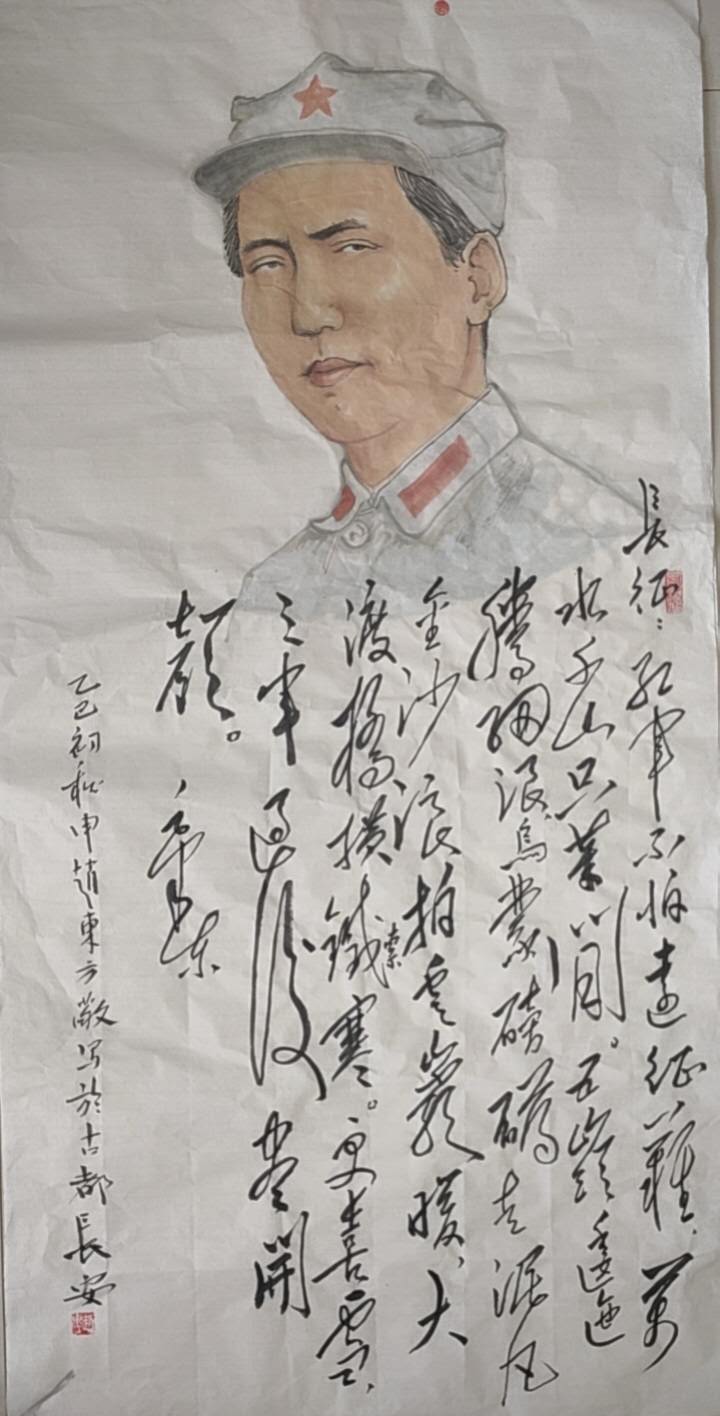 長征：红軍不怕遠征難，萬
水千山只等閑。五嶺逶迤
騰细浪烏蒙磅礴走泥丸
金沙浪拍雲巖暖，大
渡橋横鐵索寒。更喜雪，
三軍過後盡開
顏。毛泽东
乙巳初秋申趙東方敬写於古都長安